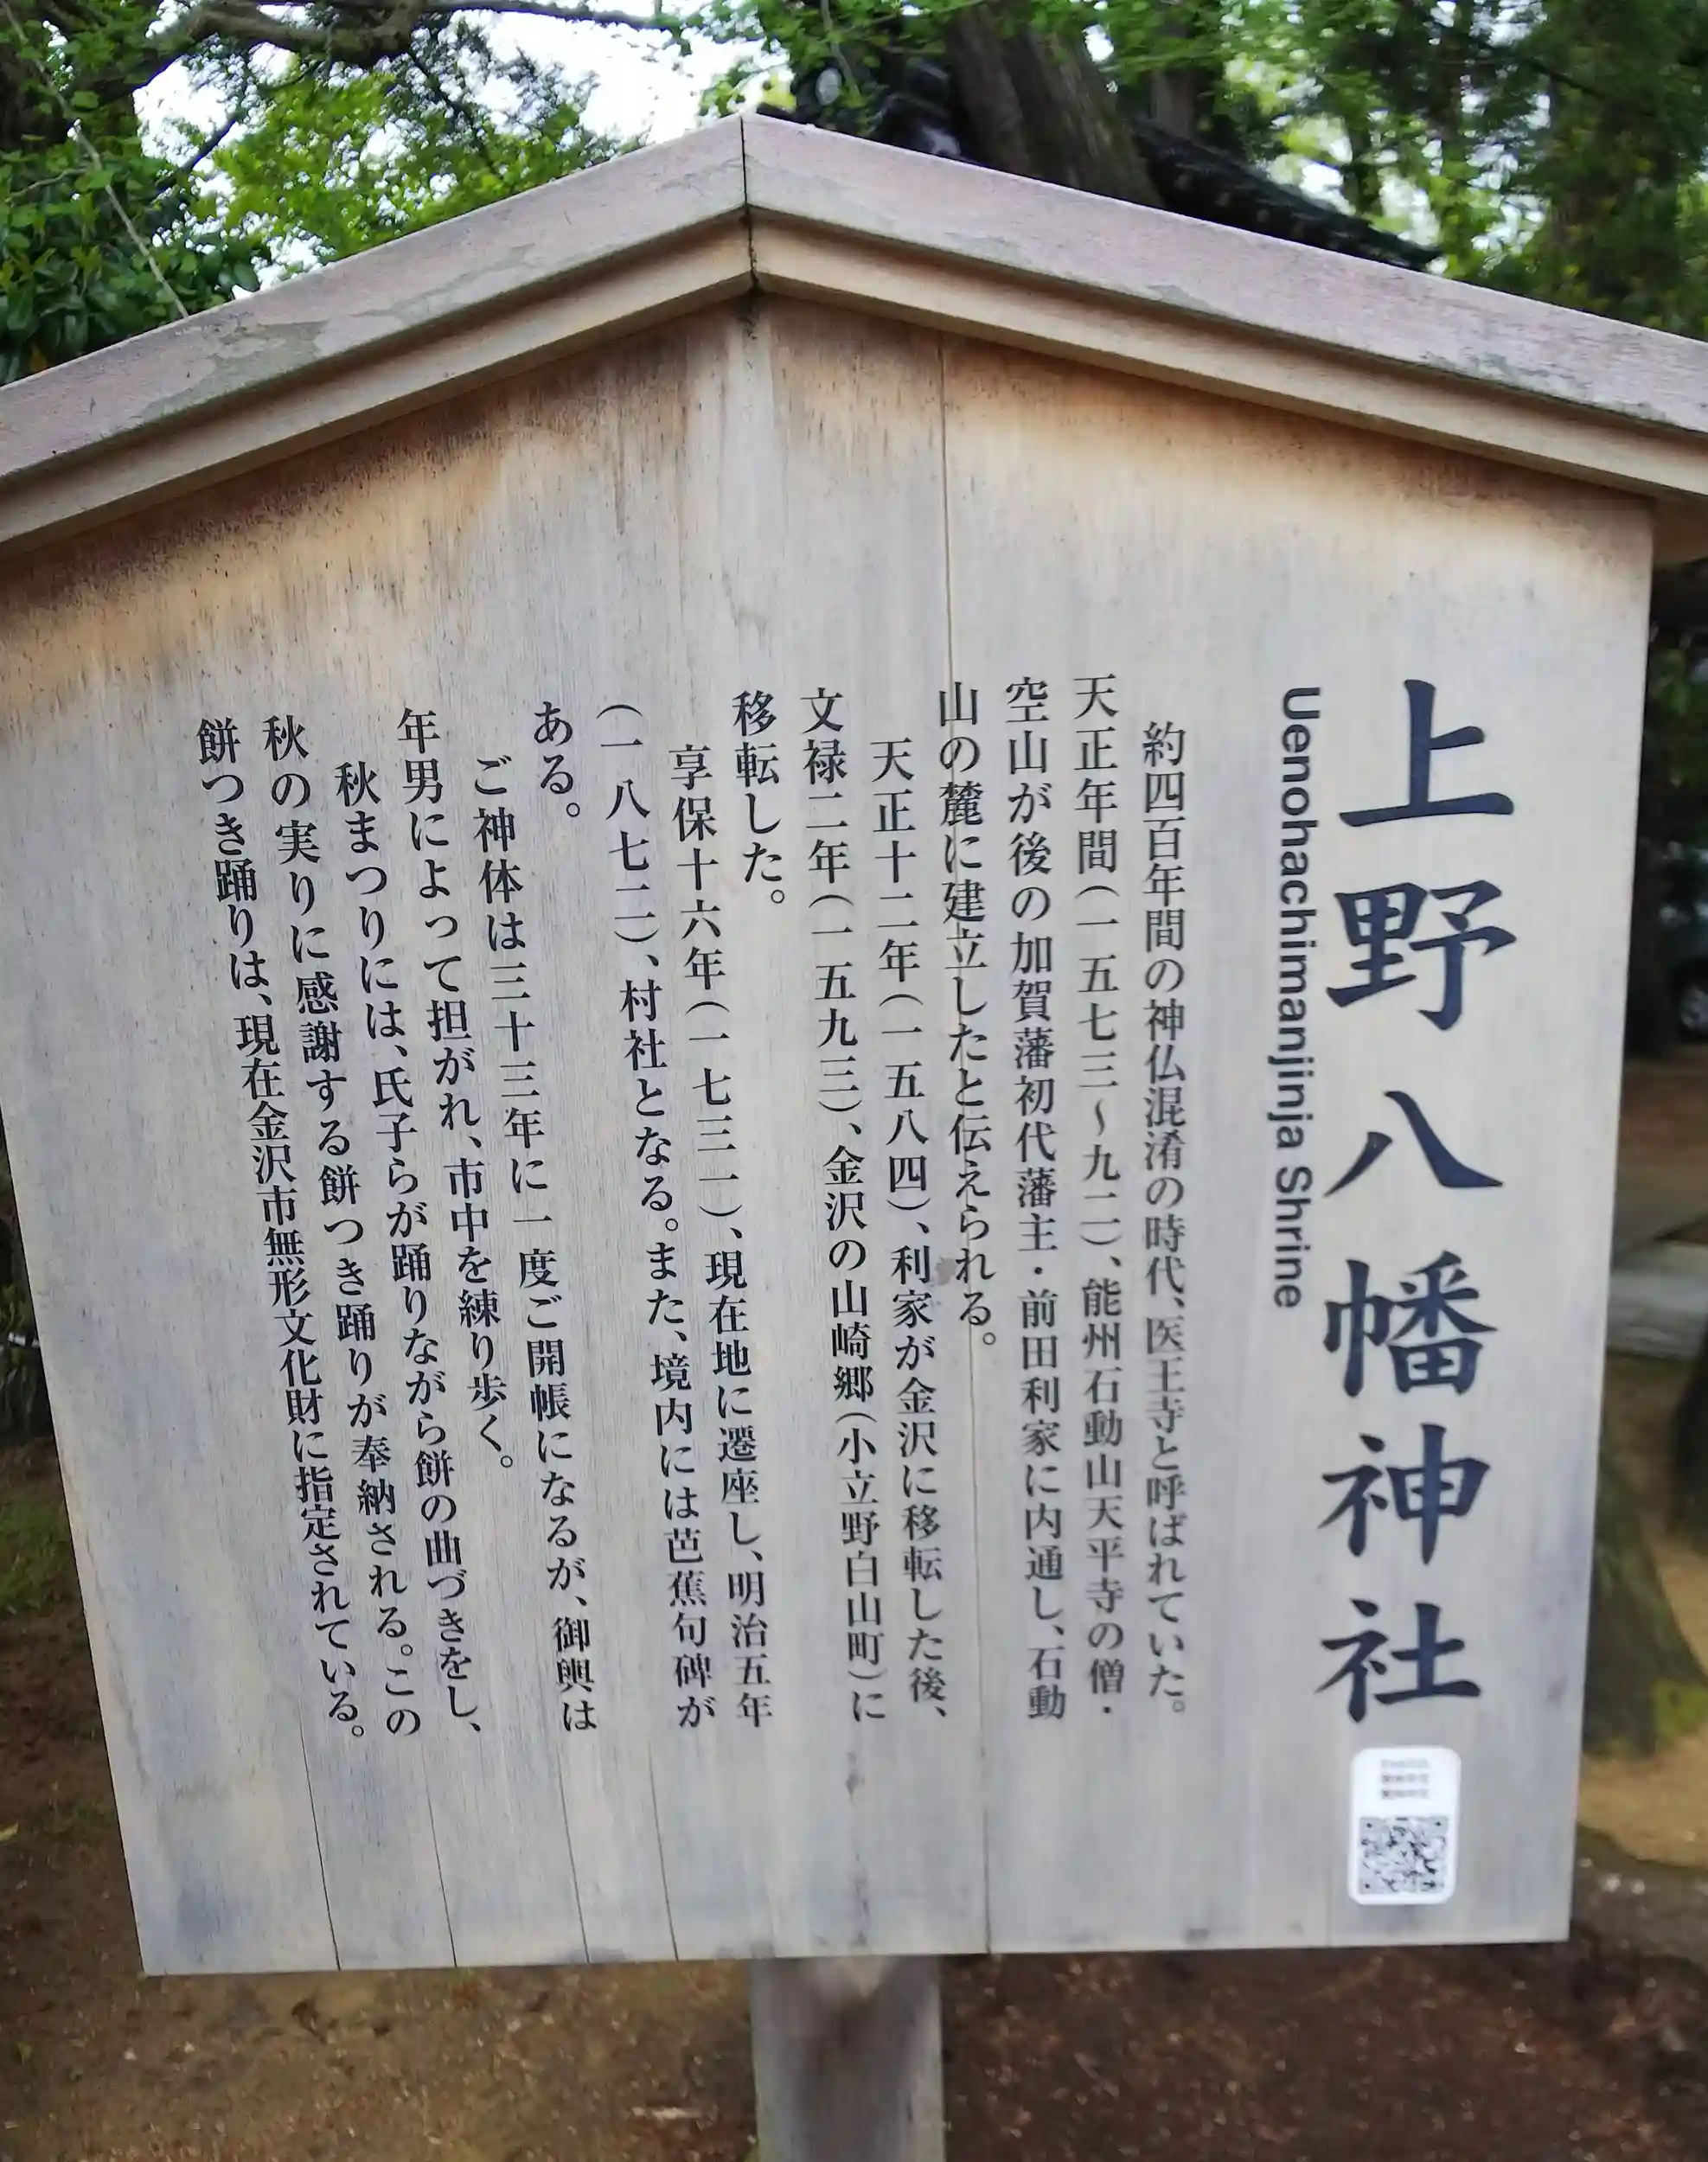 上野八幡神社
Uenohachimanjinja Shrine
約四百年間の神仏混淆の時代、医王寺と呼ばれていた。
天正年間(一五七三〜九二)、能州石動山天平寺の僧・
空山が後の加賀藩初代藩主・前田利家に内通し、石動
山の麓に建立したと伝えられる。
天正十二年(一五八四)、利家が金沢に移転した後、
文禄二年(一五九三)、金沢の山崎郷(小立野白山町)に
移転した。
享保十六年(一七三一)、現在地に遷座し、明治五年
(一八七二)、村社となる。また、境内には芭蕉句碑が
ある。
ご神体は三十三年に一度ご開帳になるが、御輿は
年男によって担がれ、市中を練り歩く。
秋まつりには、氏子らが踊りながら餅の曲づきをし、
秋の実りに感謝する餅つき踊りが奉納される。この
餅つき踊りは、現在金沢市無形文化財に指定されている。